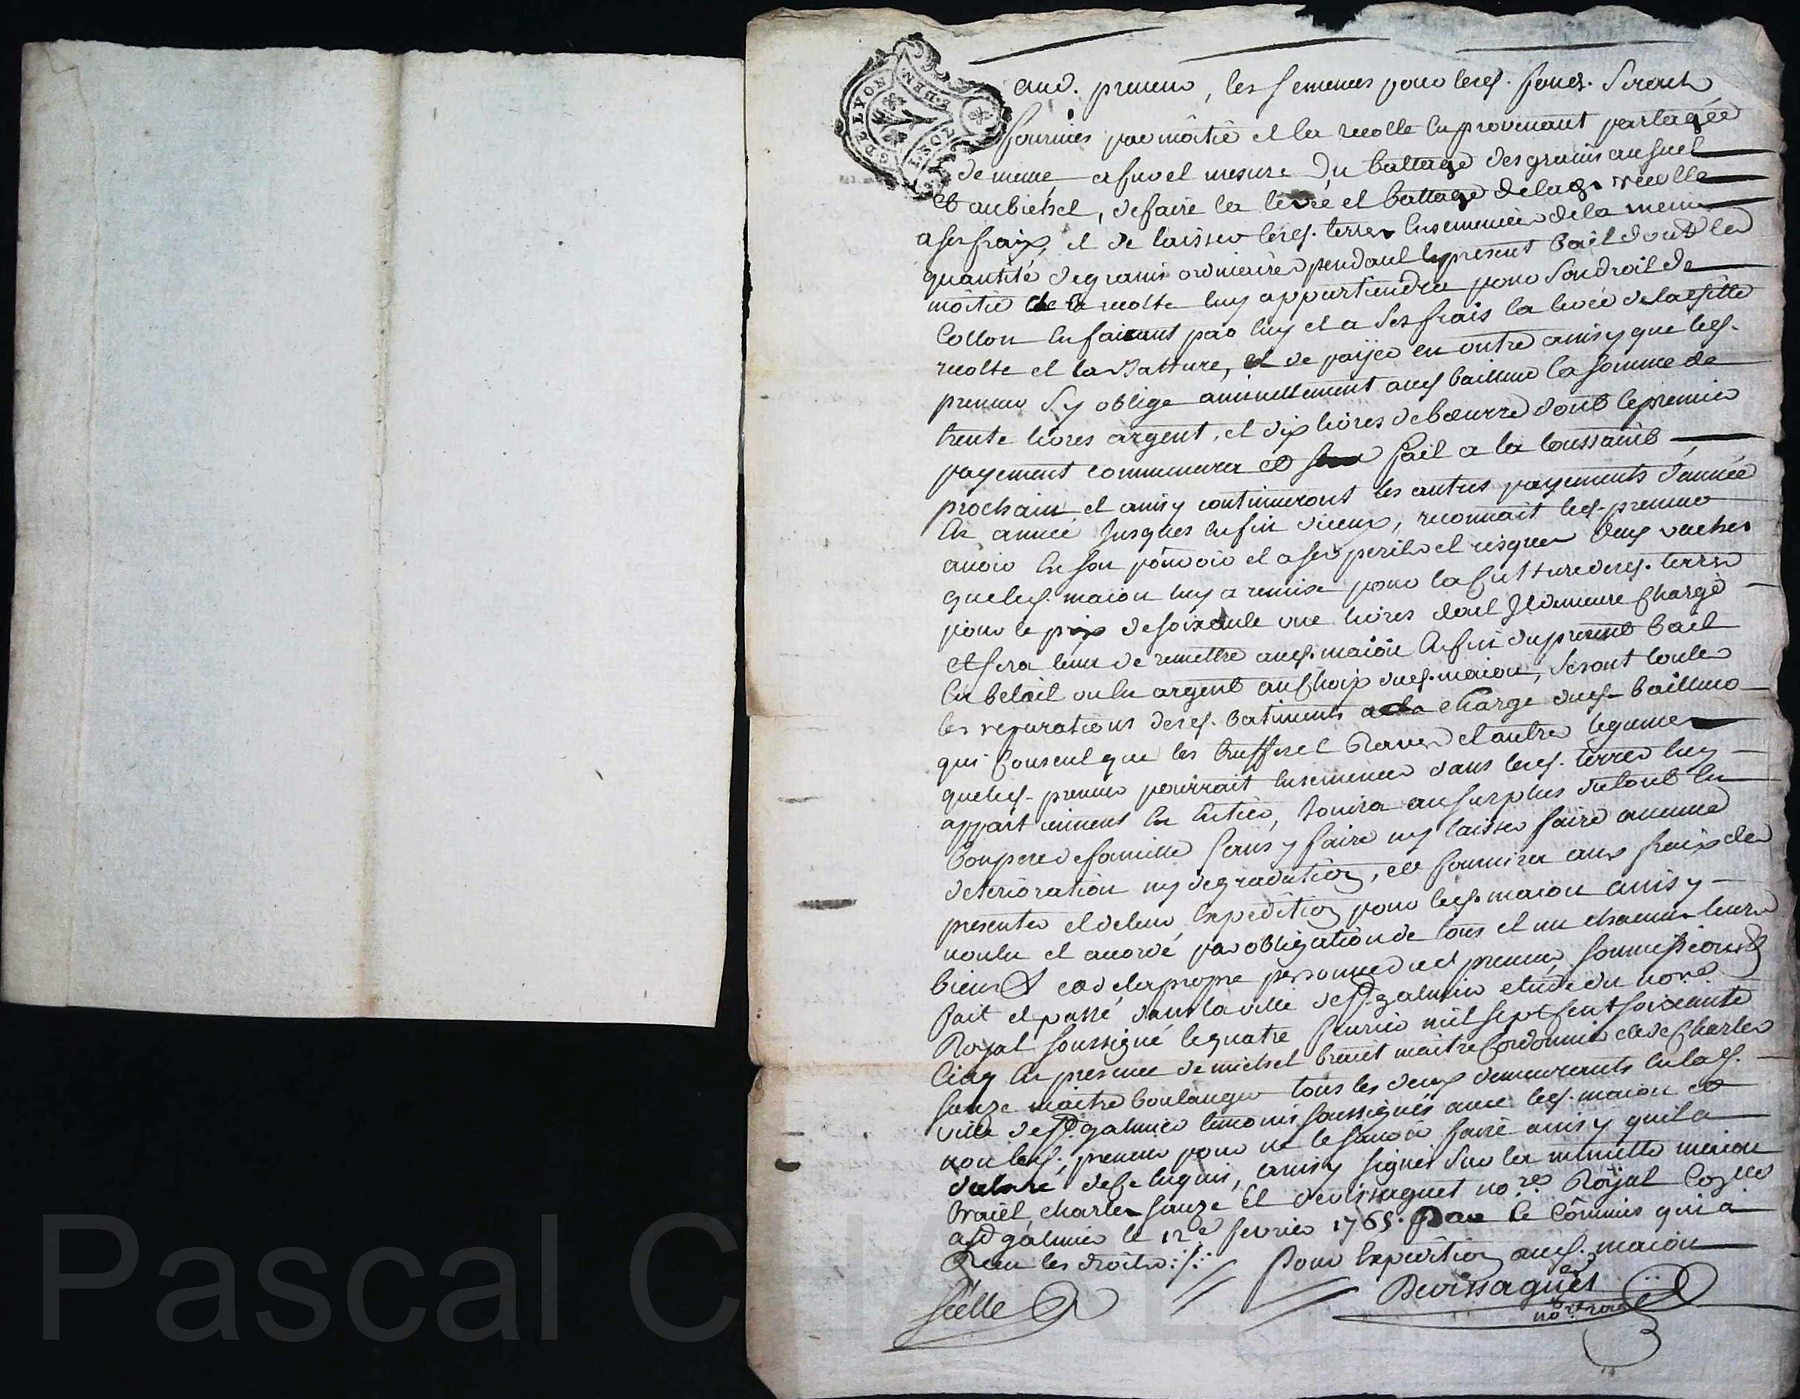 G. DE LYON
2 S. DEN
aud. preneur, les semences pour lesd. fonds. Seront
fournies par môitié et la recolte en provenant partagée
de meme a fur et mesure du battage des grains auquel
et au bichet, de faire la levée et battage de lad. recolte
a ses fraix, et de laisser lesd. terres ensemencées de la meme
quantité de grains ordinaire pendant le present bail dont la
môitié de la recolte luy appartiendra pour son droit de
Collon en faisant par luy et a ses frais la levée de laditte
recolte et la Batture, et de paÿer en outre ainsy que led.
preneur s'y oblige annuellement aud bailleur la somme de
trente livres argent, et dix livres de boeurre dont le premier
payement commencera et sera fait a la toussaint
prochain et ainsy continueront les autres payements d'année
en année jusques en fin d'iceux, reconnait led. preneur
avoir en son pouvoir et a ses perils et risques deux vaches
que led. maion luy a remise pour la Culture desd. terres
pour le prix de soixante une livres dont Il demeure Chargé
et sera tenu de remettre aud. maion En fin du present bail
En betail ou en argent au Choix dud. maion, seront toutes
les reparations desd. batiments a la Charge dud. bailleur
qui Consent que les truffes et Raves et autres legumes
que led. preneur pourrait ensemencer dans lesd. terres luy
appartiennent en entier, jouira au surplus du tout en
bon pere de famille sans y faire ny laisser faire aucune
deterioration ny degradation, et fournira aux fraix des
presentes et de leur Expedition pour led. maion ainsy
voulu et accordé par obligation de tous et un chacun leurs
biens & et de la propre personne dud preneur soumissions &
fait et passé dans la ville de St. galmier etude du nore.
Royal soussigné le quatre fevrier mil sept cent soixante
Cinq En presence de michel brait maitre Cordonnier et de Charles
sauze maitre boulanger tous les deux demeurants en lad.
ville de St. galmier temoins soussignés avec led. maion et
non led. preneur pour ne le savoir faire ainsy qu'il a
declaré de ce enquis, ainsy signés sur la minutte maion
brait, charles sauze et devissaguet nore. Royal Collé
a St galmier le 12e fevrier 1765. Par le Commis qui a
Recu les droits ./.
Pour Expedition aud. maion
Scellé
Devissaguet
nore roial
Pascal CHARLE